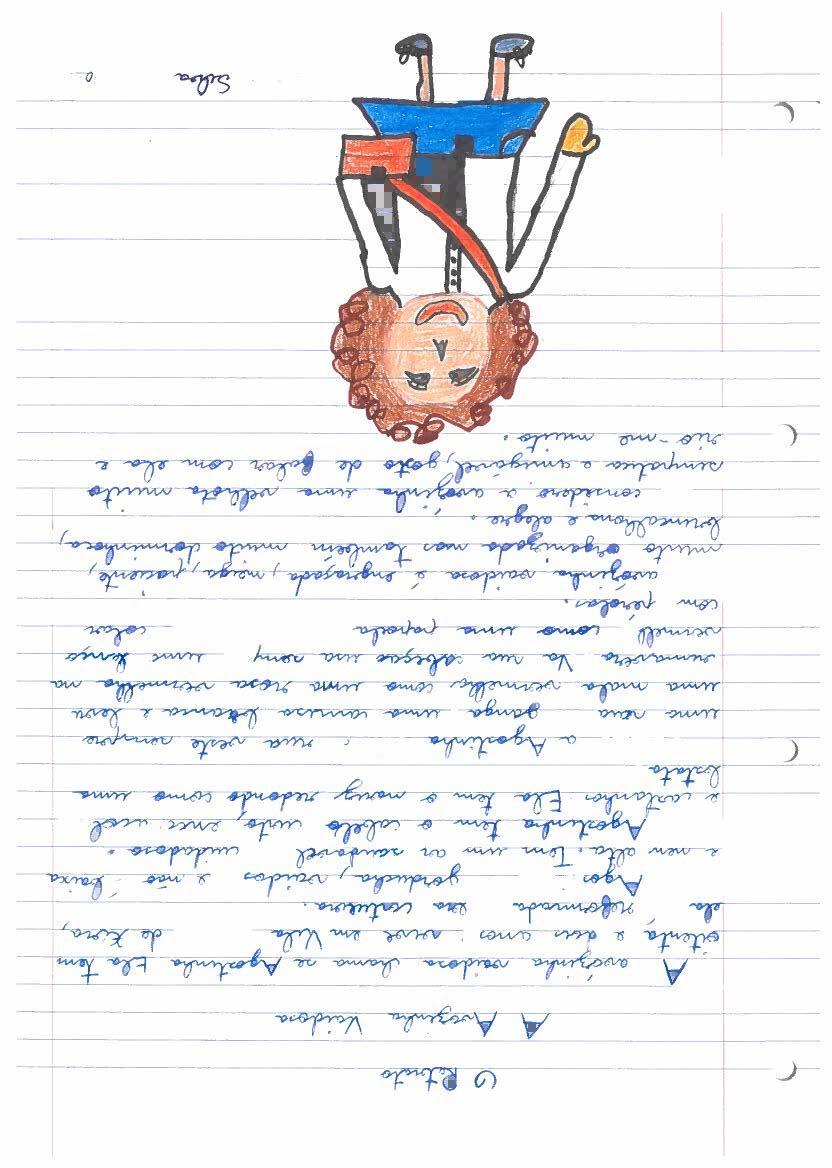 O Retrato
A Avozinha Vaidosa
A avózinha vaidosa chama se Agostinha Ela tem
oitenta e dois anos vive em Vila de Xira,
ela reformada era costureira.
Agos gorducha, vaidos e não baixa
e nem alta. Tem um ar saudável cuidadosa.
Agostinha tem o cabelo curto, enc
e castanhos Ela tem o nariz redondo como uma
batata
a Agostinha rua veste sempre
uma saia ganga uma camisa branca e leva
uma mala vermelha como uma rosa vermelha na
Na sua cabeça usa um lenço
vermelh como uma papoila colar
com pérolas.
avózinha vaidosa é engraçada, meiga, paciente,
muito organizada mas também muito dorminhoca,
brincalhona e alegre.
considero a avozinha uma velhota muito
simpatica e amigável, gosto de falar com ela e
rio-me muito.
Silva